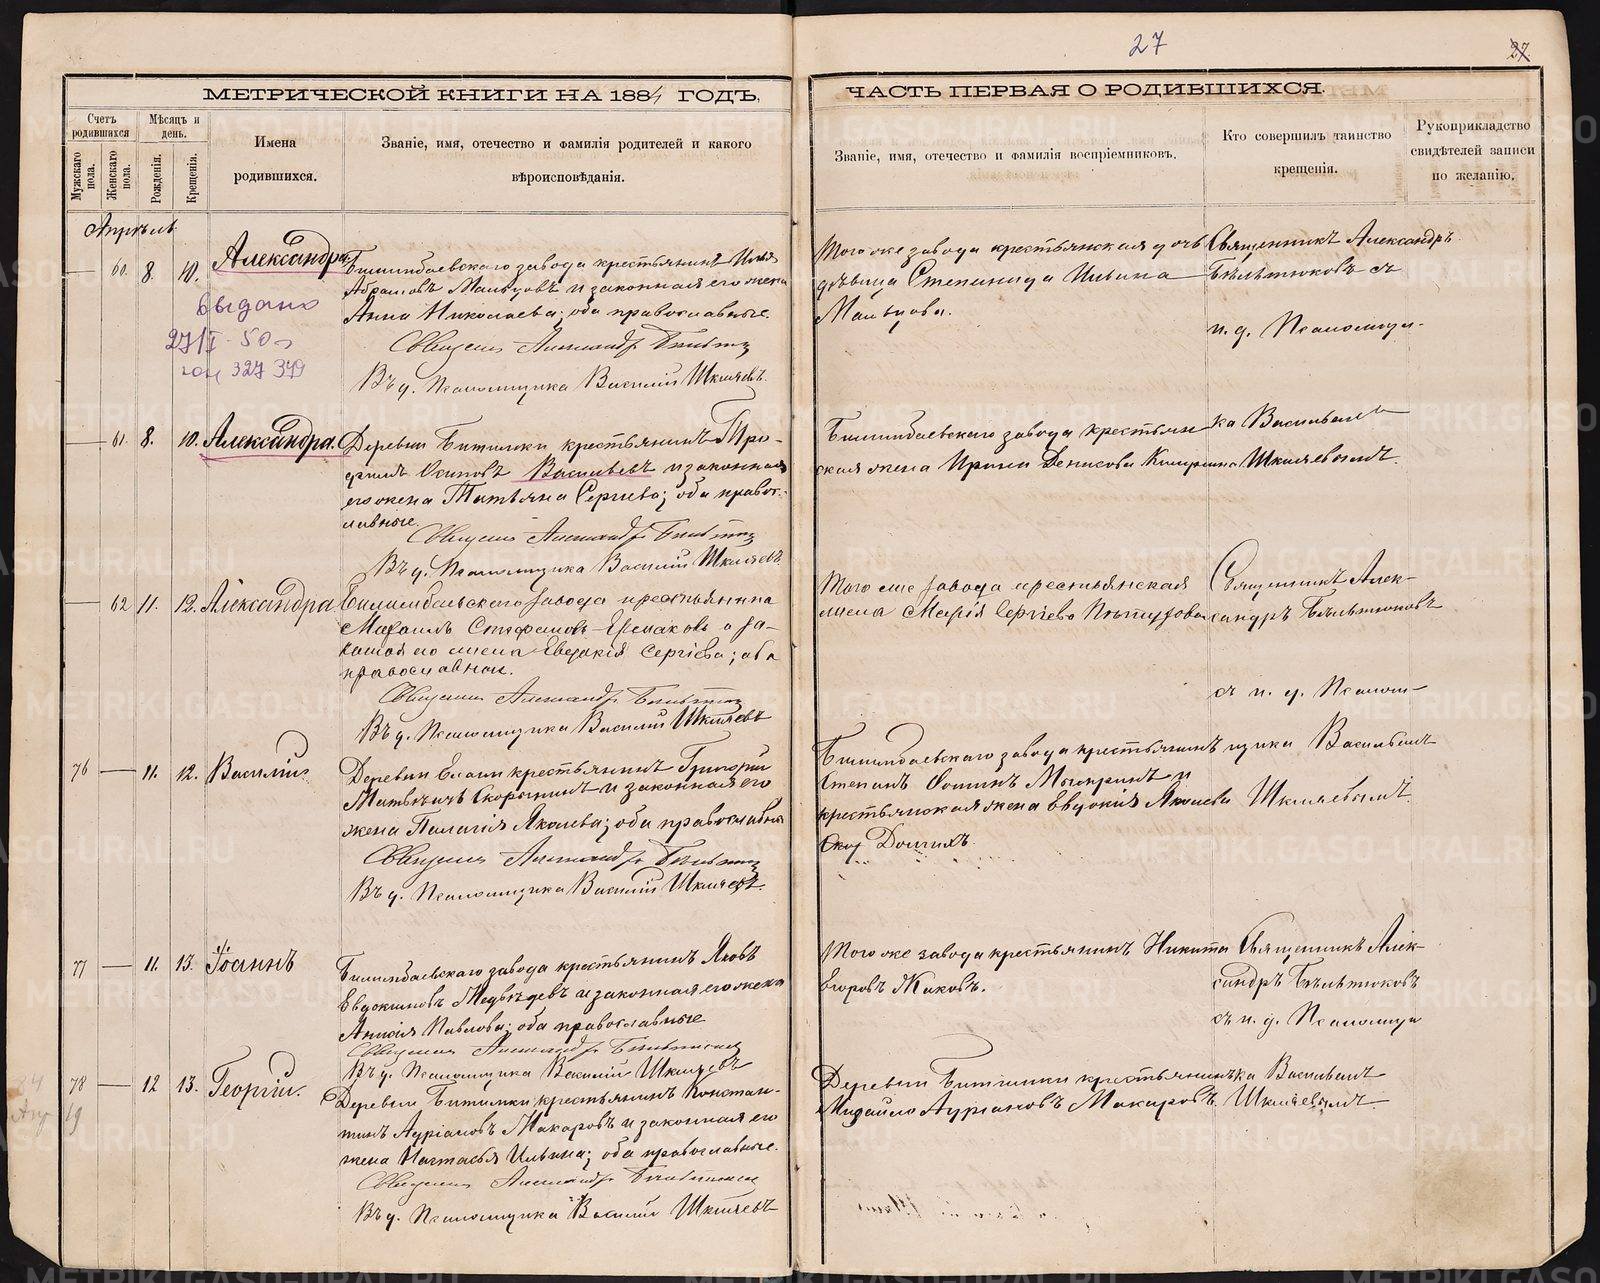 27
27.
МЕТРИЧЕСКОЙ КНИГИ НА 1884 ГОДЪ,
ЧАСТЬ ПЕРВАЯ О РОДИВШИХСЯ.
Счетъ родившихся
Мужскаго пола.
Женскаго пола.
Мѣсяцъ и день.
Рожденія.
Крещенія.
Имена родившихся.
Званіе, имя, отечество и фамилія родителей и какого вѣроисповѣданія.
Званіе, имя, отечество и фамилія воспріемниковъ.
Кто совершилъ таинство крещенія.
Рукоприкладство свидѣтелей записи по желанію.
Апрѣль
60. 8. 10. Александра
Билимбаевскаго завода крестьянинъ Илья
Абрамовъ Мальцовъ и законная его жена
Анна Николаева; оба православные.
Священникъ Александръ
Въ д. Псаломщика Василій Шкляевъ.
выдано
27/I-50
327379
Того же завода крестьянская дочь
дѣвица Степанида Ильина
Мальцова.
Священникъ Александръ
Бѣльтюковъ съ
и. д. Псаломщи-
61. 8. 10. Александра.
Деревни Битимки крестьянинъ Тро-
фимъ Осиповъ Васильевъ и законная
его жена Татьяна Сергеева; оба правос-
лавные.
Священникъ Александръ
Въ д. Псаломщика Василій Шкляевъ.
Билимбаевскаго завода крестьян-
ская жена Ирина Денисова
ка Васильемъ
Шкляевымъ.
62 11. 12. Александра
Билимбаевскаго завода крестьянина
Михаилъ Стефановъ Ермаковъ и за-
конная его жена Евдокія Сергіева; оба
православные.
Священникъ Александръ
Въ д. Псаломщика Василій Шкляевъ
Того же завода крестьянская
жена Марія Сергіева
Священникъ Алек-
сандръ Бѣльтюковъ
съ и. д. Псалом-
76 11. 12. Василій
Деревни крестьянинъ Григорій
Матвѣевъ Скорынинъ и законная его
жена Палагія Яковлева; оба православные
Священникъ Александръ
Въ д. Псаломщика Василій Шкляевъ.
Билимбаевскаго завода крестьянинъ
Степанъ Фоминъ и
крестьянская жена Евдокія Яковлева
Долгихъ.
щика Васильемъ
Шкляевымъ.
77 11. 13. Іоаннъ
Билимбаевскаго завода крестьянинъ Яковъ
Евдокимовъ Медвѣдевъ и законная его жена
Анисія Павлова; оба православные
Священникъ Александръ
Въ д. Псаломщика Василій Шкляевъ
Того же завода крестьянинъ Никита
Егоровъ Жаковъ.
Священникъ Алек-
сандръ Бѣльтюковъ
съ и. д. Псаломщи
78 12 13. Георгій.
Деревни Битимки крестьянинъ Констан-
тинъ Адріановъ Макаровъ и законная его
жена Настасья Ильина; оба православные.
Священникъ Александръ
Въ д. Псаломщика Василій Шкляевъ
Деревни Битимки крестьянинъ
Михайло Адріановъ Макаровъ.
ка Васильемъ
Шкляевымъ.
METRIKI.GASO-URAL.RU